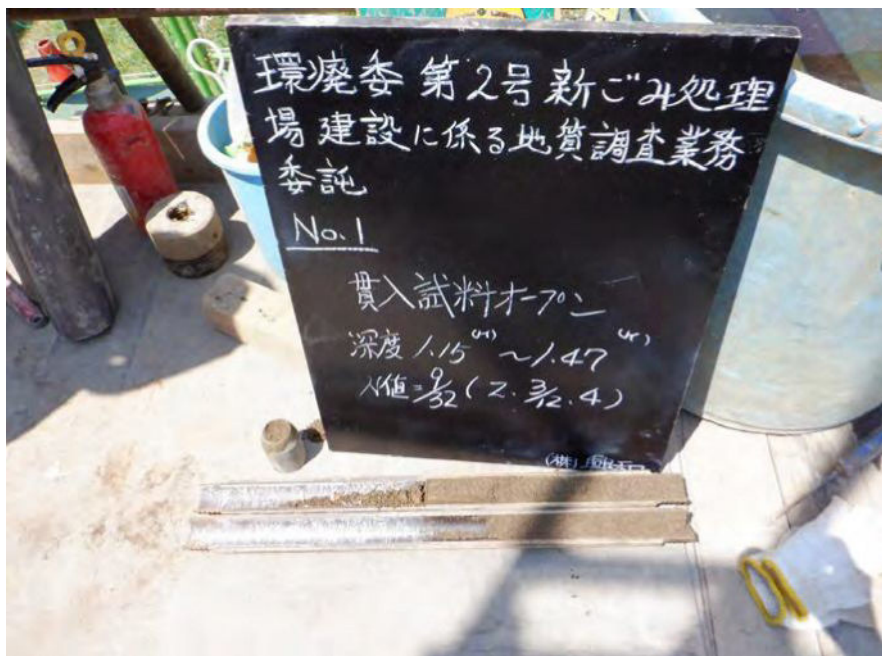 環廃委 第2号 新ごみ処理
場 建設に係る地質調査業務
委託
No.1
貫入試料オープン
深度 1.15(m)~1.47(m)
N値=9/32(2. 3/12. 4)
(株)